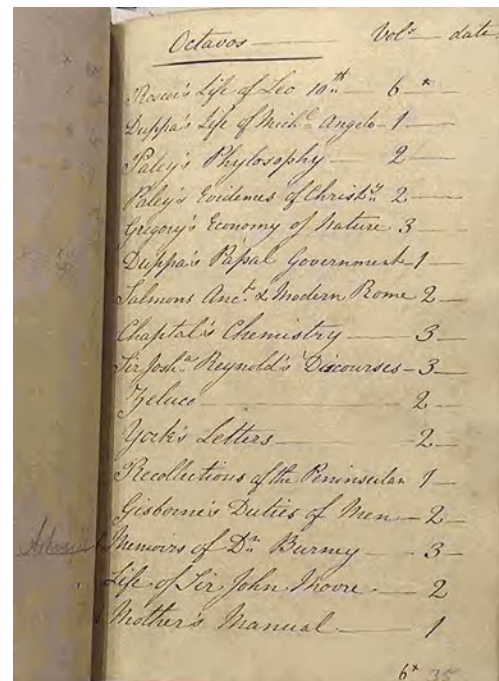 Octavos — Vols — date
Roscoe's Life of Leo 10th — 6 *
Duppa's Life of Michl Angelo — 1 —
Paley's Phylosophy — 2 —
Paley's Evidences of Christy 2 —
Gregory's Economy of Nature 3 —
Duppa's Papal Government — 1 —
Salmons Anct & Modern Rome 2 —
Chaptal's Chemistry — 3 —
Sir Josha Reynold's Discourses — 3 —
Zeluco — 2 —
York's Letters — 2 —
Recollections of the Peninsular 1 —
Gisborne's Duties of Men — 2 —
Memoirs of Dr Burney — 3 —
Life of Sir John Moore — 2
Mother's Manual — 1
6* 35